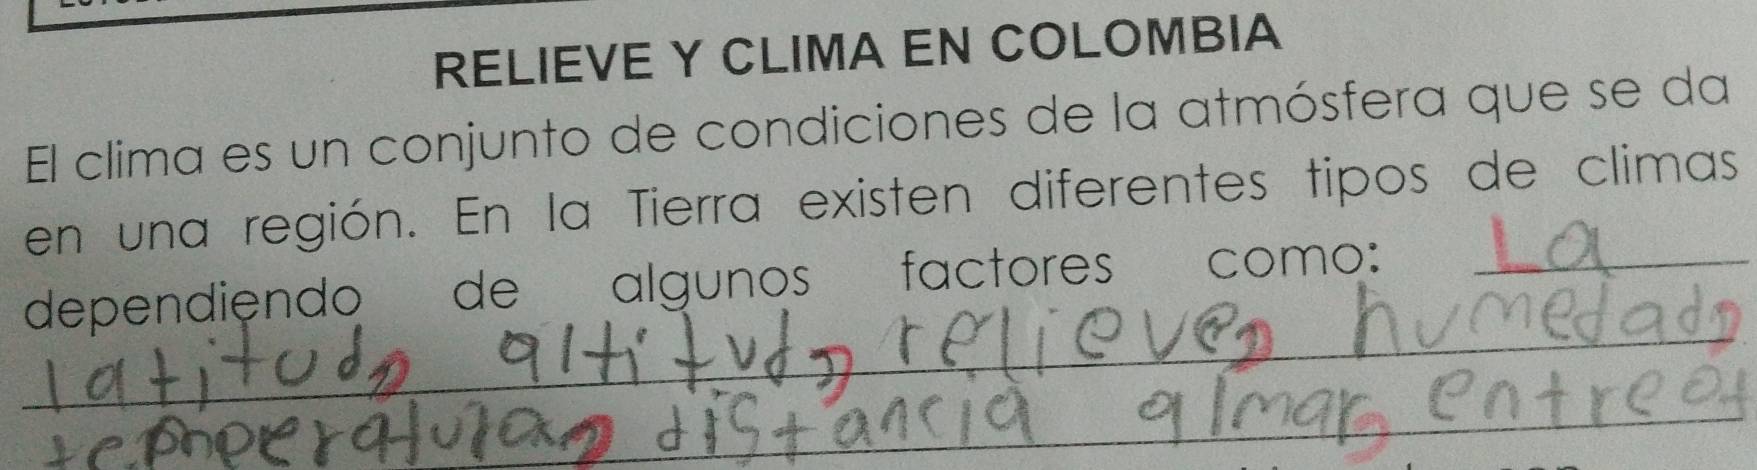 RELIEVE Y CLIMA EN COLOMBIA
El clima es un conjunto de condiciones de la atmósfera que se da
en una región. En la Tierra existen diferentes tipos de climas
dependiendo de algunos factores como: La
latitud, altitud, relieve, humedad,
distancia almar, entre